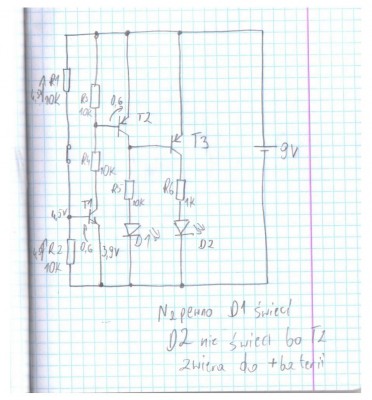 R1
4,5V
10K
R3
10K
0,6
T2
T3
9V
R4
10K
R5
10K
R6
1K
4,5V
T1
R2
4,5V
10K
0,6
3,9V
D1
D2
Napewno D1 świeci
D2 nie świeci bo T2
zwiera do + baterii